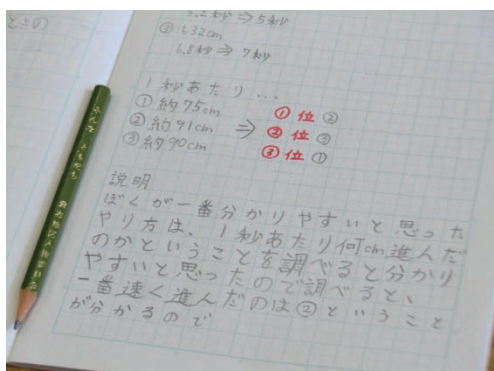 5.2秒⇒5秒
③ 632cm
6.8秒⇒7秒
1秒あたり...
① 約75cm
② 約91cm
③ 約90cm
⇒
①位 ②
②位 ③
③位 ①
説明
ぼくが一番分かりやすいと思った
やり方は、1秒あたり何cm進んだ
のかということを調べると分かり
やすいと思ったので調べると、
一番速く進んだのは②ということ
が分かるので